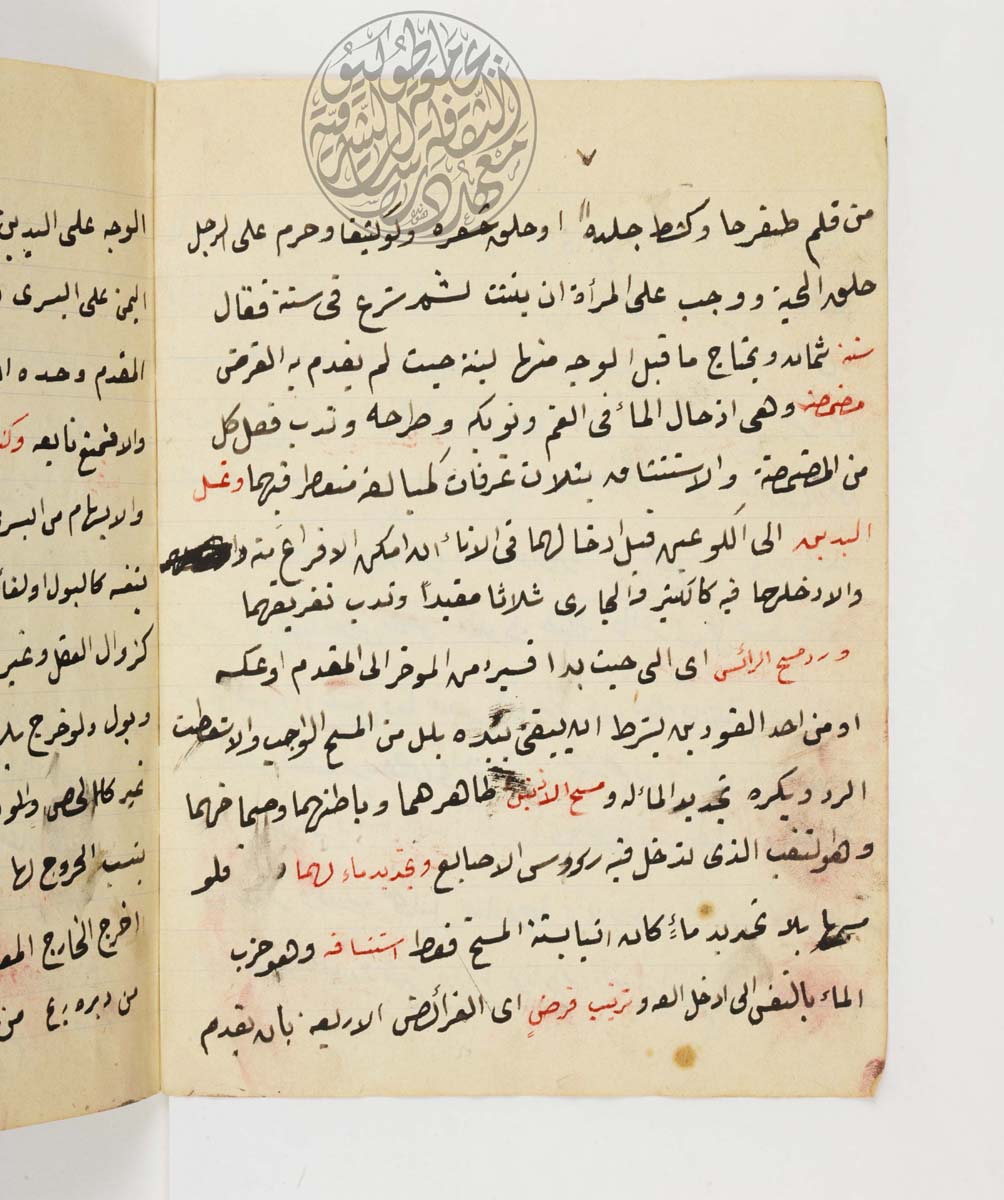 ٧
من قلم ظفر حا وكشط جلده او حلق شعره ولو كثيفا وحرم على الرجل
حلق الحية ووجب على المرأة ان ينتت لشم شرع فى سنة فقال
سننه ثمان ويحتاج ما قبل الوجه منها لينة حيث لم يقدم به القرض
مضمضة وهى ادخال الماء فى الفم ونويكه وطرحه وتدب فصل كل
من المضمضة والاستنشاق بثلاث غرفات كمبالغة مفطر فيهما وغسل
اليدين الى الكوعين قبل ادخالهما فى الاناء ان امكن الافراغ منه
والا دخلهما فيه كالكثير والجارى ثلاثا مقيداً وتدب تفريقهما
ورد مسح الرائس اى الى حيث بدا فسيره من الموخر الى المقدم او عكسه
او من احد الفودين بشرط ان يبقى بيده بلل من المسح الواجب والا سقطت
الرد ويكره تجديد الماء له ومسح الاذنين ظاهرهما وباطنهما وصماخهما
وهو لثقب الذى تدخل فيه رووسى الاصابع وتجديد ماء لهما فلو
مسحها بلا تجديد ماءٍ كان اتيا بسنة المسح فقط استنشاقه وهو جزب
الماء بالنفس الى ادخل الفه وترتيب فرضٍ اى الفرائض الاربعة بان يقدم
الوجه على اليدين
اليمن على اليسرى
المقدم وحده
والا فيمنع تابعه
والابهام من اليسرى
بنفسه كالبول او
كزوال العقل وغير
وبول ولو خرج
غير كالحصى
بسبب الخروج لها
اخرج الخارج
من دبره من
جامعة طوكيو
معهد دراسات الثقافة الشرقية